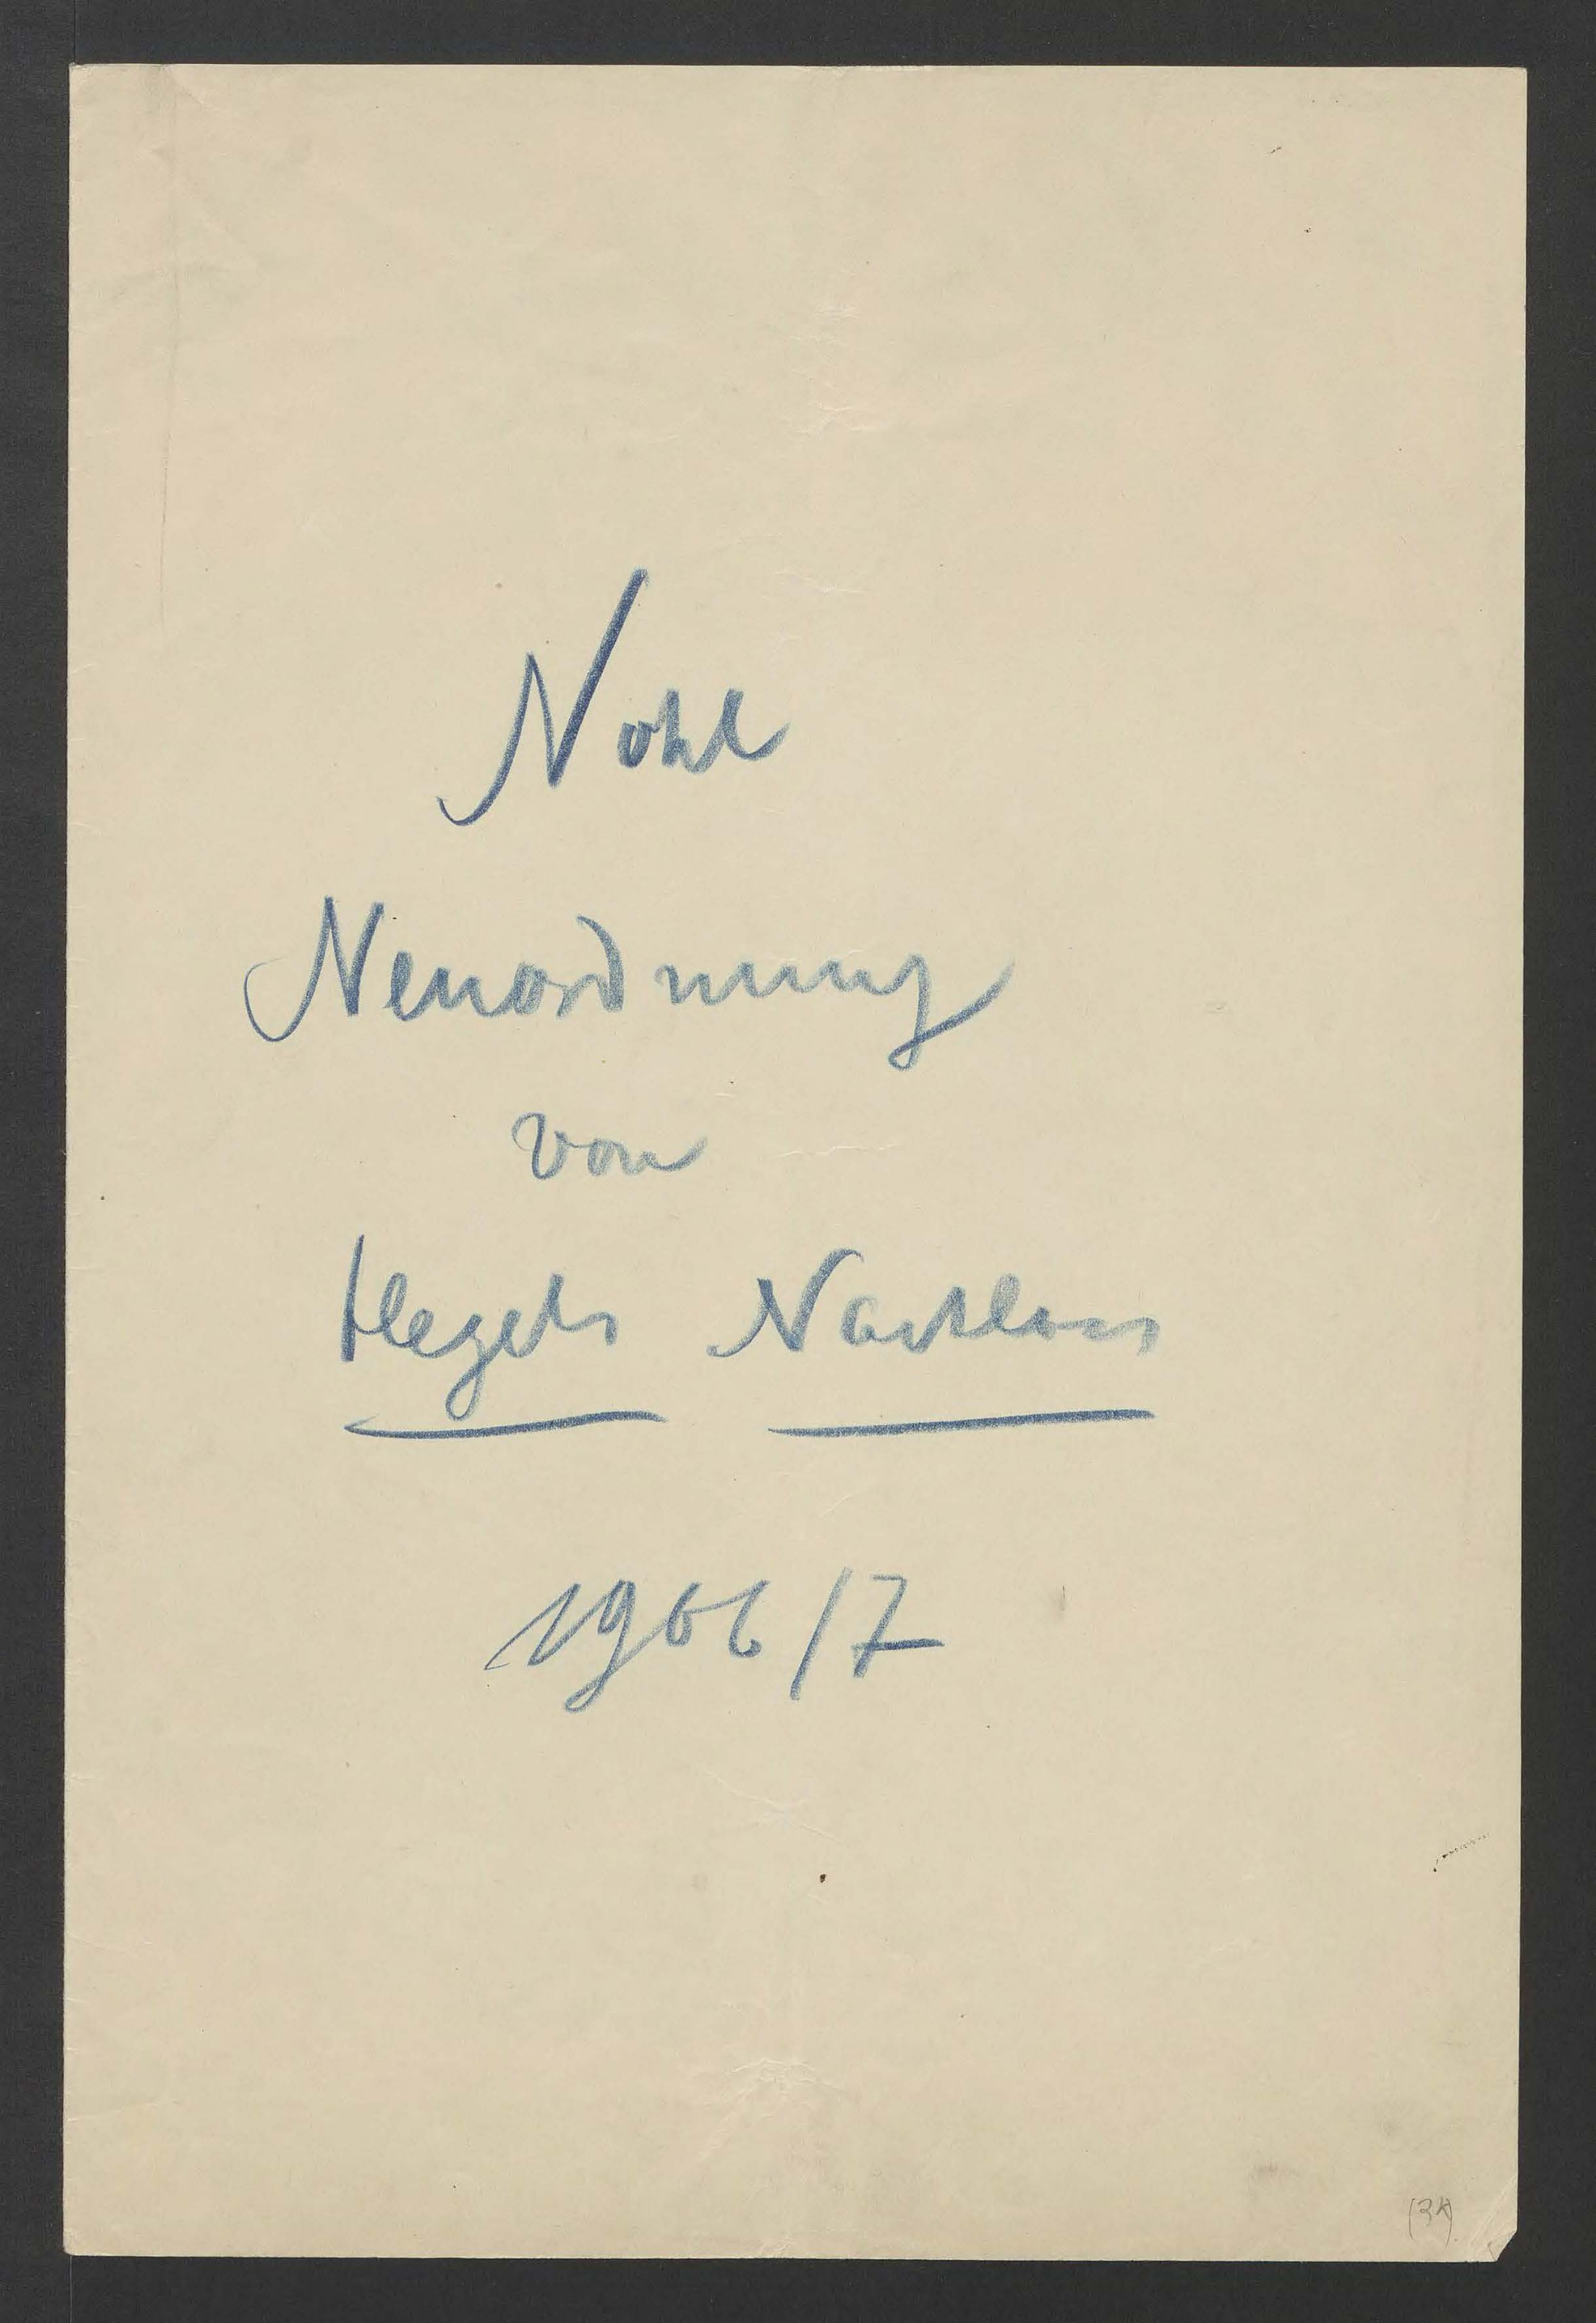 Nohl
Neuordnung
von
Hegels Nachlass
1906/7